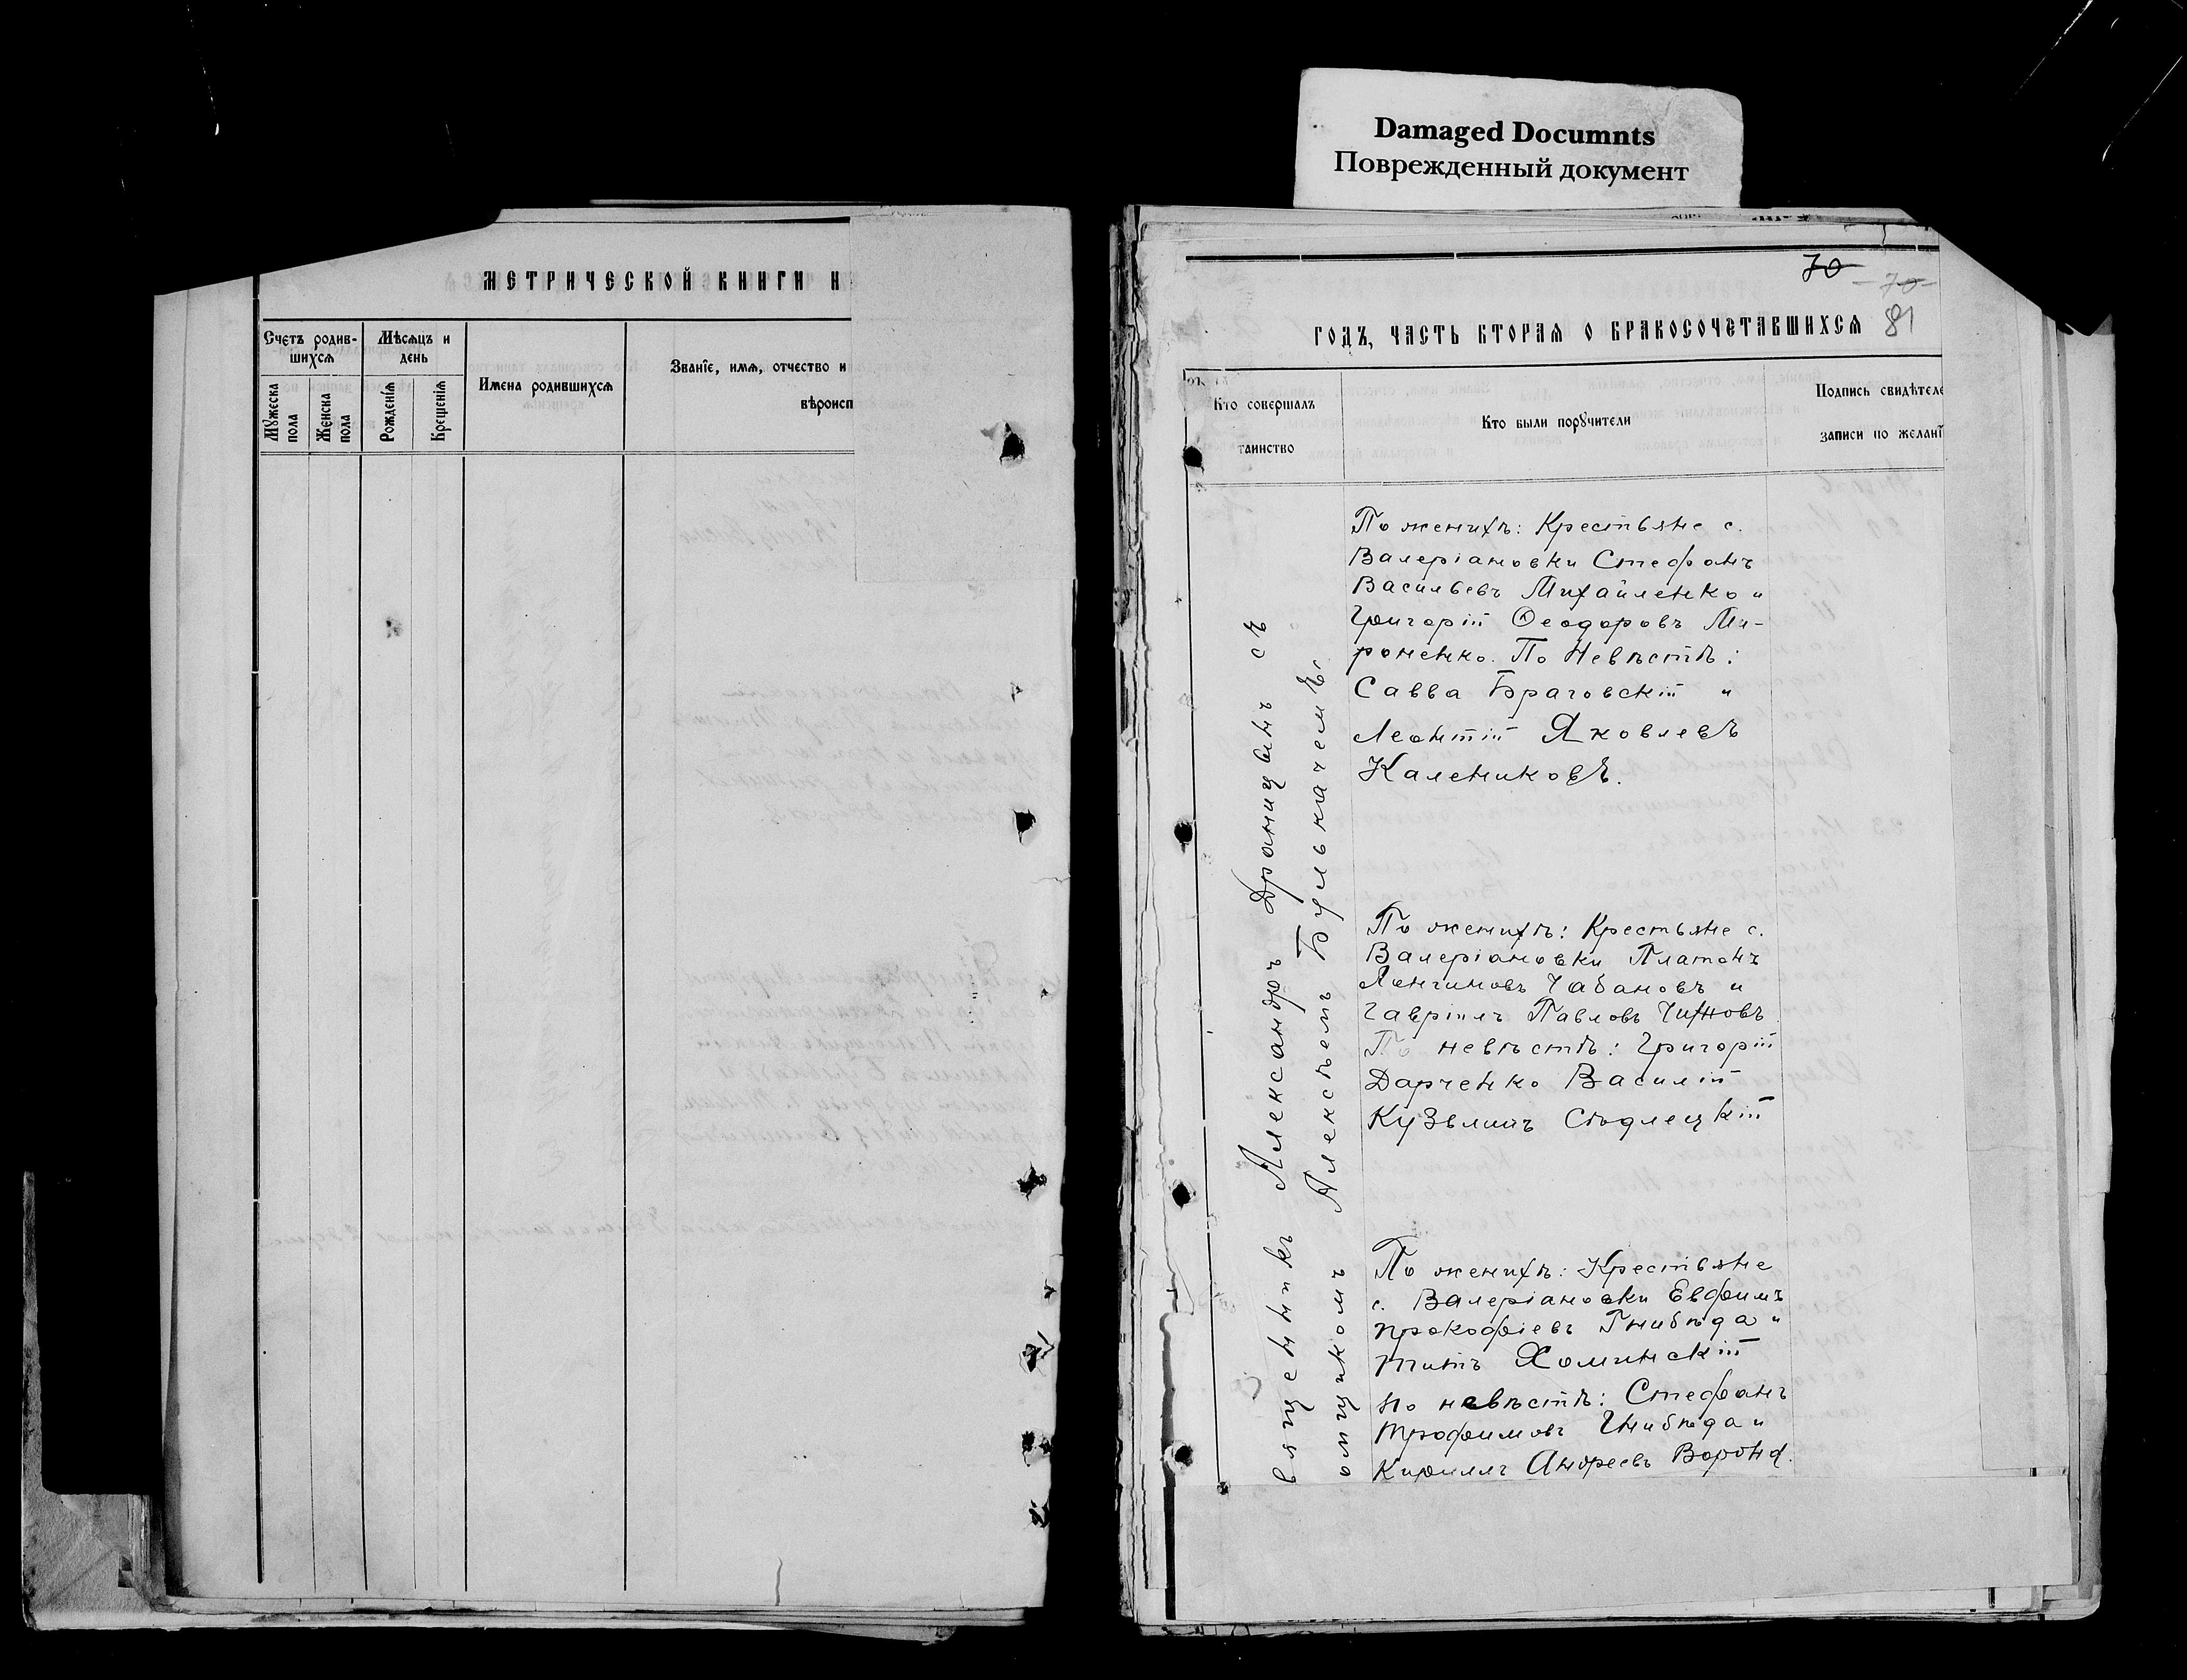 Damaged Documnts
Поврежденный документ
МЕТРИЧЕСКОЙ КНИГИ Н
Счетъ родив-
шихся
Мѣсяцъ и
день
Имена родившихся
Званіе, имя, отчество и
вѣроисп
Мужеска
пола
Женска
пола
Рожденія
Крещенія
70
70
81
ГОДЪ, ЧАСТЬ ВТОРАЯ О БРАКОСОЧЕТАВШИХСЯ
Кто совершалъ
таинство
Кто были поручители
Подпись свидѣтеле
записи по желані
вященникъ Александръ Драницынъ съ
омщикомъ Алексѣемъ Булькачемъ
По женихѣ: Крестьяне с.
Валеріановки Стефанъ
Васильевъ Михайленко и
Григорій Ѳеодоровъ Ми-
роненко. По Невѣстѣ:
Савва Браговскій и
Леонтій Яковлевъ
Калениковъ.
По женихѣ: Крестьяне с.
Валеріановки Платонъ
Лонгиновъ Чабановъ и
Гавріилъ Павловъ Чихновъ
По невѣстѣ: Григорій
Дарченко Василій
Кузьминъ Сѣдлецкій
По женихѣ: Крестьяне
с. Валеріановки Евфимъ
Прокофіевъ Гнибѣда и
Титъ Хоминскій
по невѣстѣ: Стефанъ
Трофимовъ Гнибѣда и
Кириллъ Андреевъ Ворона.